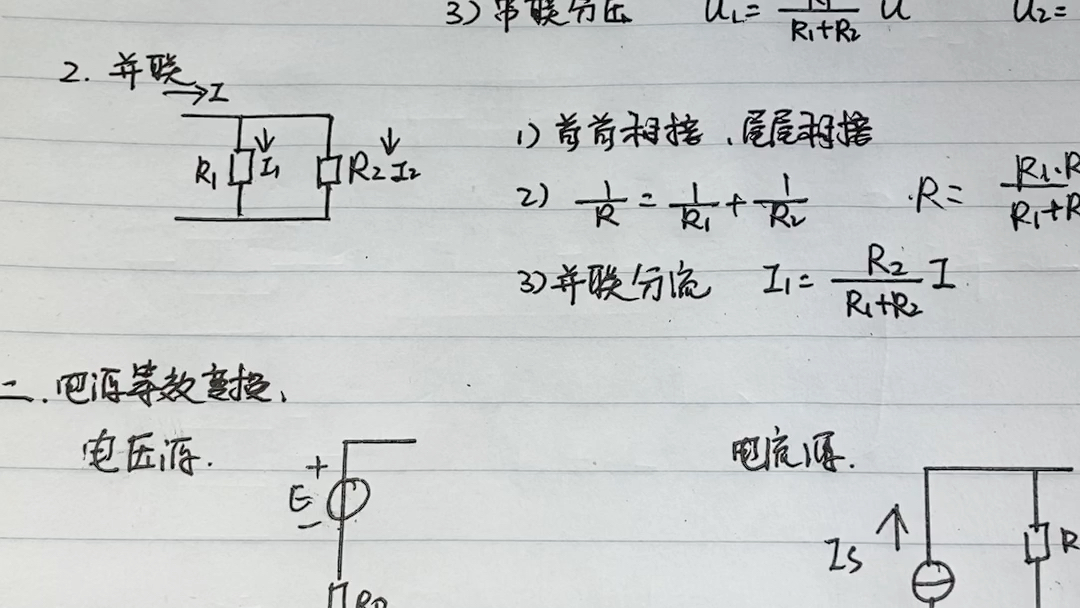 3) 串联分压 U₁= /(R₁+R₂) U U₂=
2. 并联
→I
R₁ ↓I₁ R₂ ↓I₂
1) 首首相接、尾尾相接
2) 1/R = 1/R₁ + 1/R₂ R= R₁·R/(R₁+R
3) 并联分流 I₁= R₂/(R₁+R₂) I
二. 电源等效变换、
电压源. 电流源.
+
E
−
Is ↑ R
R₀